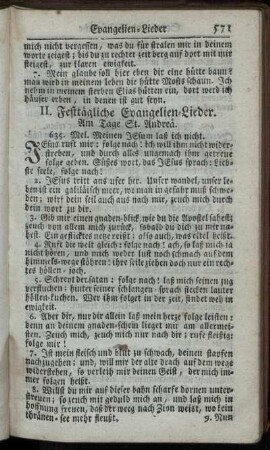 Evangelien-Lieder 571
mich nicht vergessen, was du für stralen mir in deinem
worte zeigest; bis du zu rechter zeit berg auf dort mit mir
steigest, zur klaren ewigkeit.
7. Mein glaube soll hier eben dir eine hütte baun:
man wird in meinem leben die hütte Mosis schaun. Ich
nehm in meinem sterben Elias hütten ein, dort werd ich
häuser erben, in denen ist gut seyn.
II. Festtägliche Evangelien-Lieder.
Am Tage St. Andreä.
635. Mel. Meinen JEsum laß ich nicht.
JEsus ruft mir: folge nach! Ich will ihm nicht wider-
streben, und durch alles ungemach ihm getreue
folge geben. Süsses wort, das JEsus sprach: lieb-
ste seele, folge nach!
2. JEsus tritt uns über her. Unser wandel, unser le-
bens ist galiläisch meer, wo man in gefahr muß schwe-
ben; wir dein soll auch zu mir nahn, und mein hertz
3. Gib mir ein gnaden-blick wie du die Apostel sahest;
zeuch von allem mich zurück, sobald du dich zu mir na-
hest. Das netze eitelkeit reist: also auch, was eitel heißt.
4. Rufst die welt gleich: folge nach! ach, so laß mich ja
nicht hören, und mein herz durch schwach und auf dem
himmels-wege stöhren! ihre seile ziehen doch nur ein rech-
tes höllen-joch.
5. Schreyt der satan: folge nach! laß mich seinen zug
verfluchen: hinter seiner schlangen-sprach stecken lauter
höllen-kuchen. Wer ihm folget in der zeit, findet weh in
ewigkeit.
6. Aber dir, nur dir allein laß mein herze folge leisten:
denn an deinem gnaden-schein lieget mir am allermei-
sten. Zeuch mich, zeuch mich nur nach dir: rufe kräftig:
folge mir!
7. Ist mein fleisch und blut zu schwach, deinen stapfen
nachzugehen: und, will mir der alte drach auf dem wege
widerstehen, so verleih mir deinen Geist, der mich im-
mer folgen heist.
8. Willst du mir auf dieser bahn scharfe dornen unter-
streuen: so zeuch mit geduld mich an, und laß mich in
hoffnung freuen, daß der weg nach Zion weist, wo kein
thränen-see mehr fleußt.
9. Nun